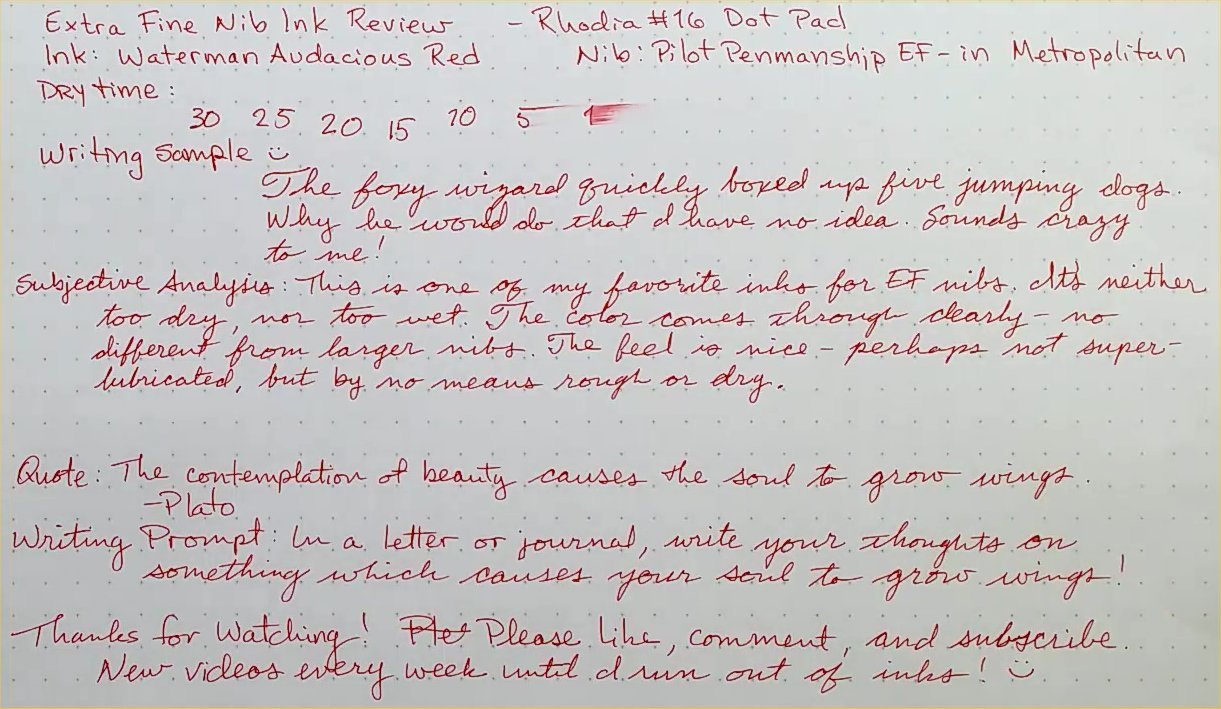 Extra Fine Nib Ink Review - Rhodia #16 Dot Pad
Ink: Waterman Audacious Red Nib: Pilot Penmanship EF - in Metropolitan
Dry time:
30 25 20 15 10 5 1
Writing Sample :)
The foxy wizard quickly boxed up five jumping dogs.
Why he would do that I have no idea. Sounds crazy
to me!
Subjective Analysis: This is one of my favorite inks for EF nibs. It's neither
too dry, nor too wet. The color comes through clearly - no
different from larger nibs. The feel is nice - perhaps not super-
lubricated, but by no means rough or dry.
Quote: The contemplation of beauty causes the soul to grow wings.
-Plato
Writing Prompt: In a letter or journal, write your thoughts on
something which causes your soul to grow wings!
Thanks for Watching! Ples Please like, comment, and subscribe.
New videos every week until I run out of inks! :)